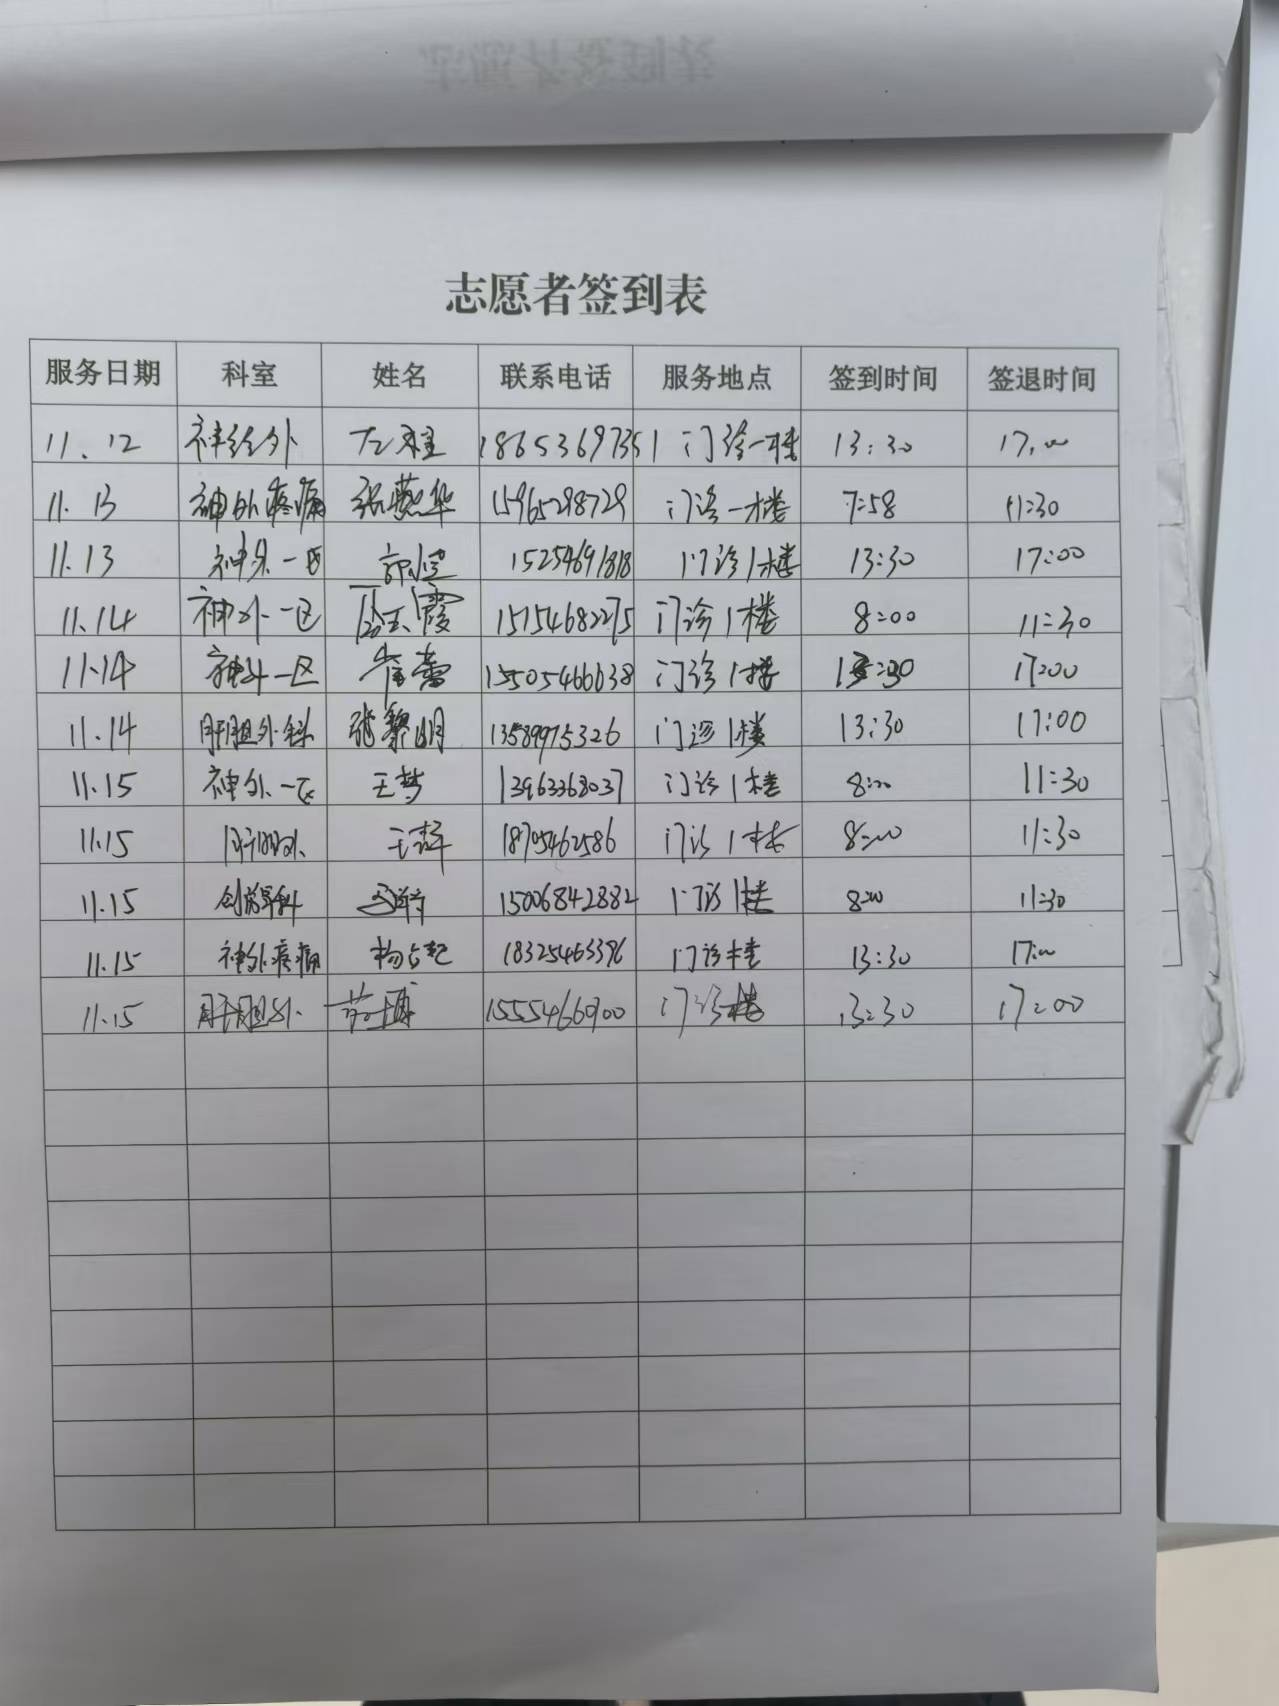 志愿者签到表
服务日期 科室 姓名 联系电话 服务地点 签到时间 签退时间
11.12 神经外 18653697351 门诊一楼 13:30 17:00
11.13 神外疼痛 张燕华 15965298729 门诊一楼 7:58 11:30
11.13 神外一区 15254691818 门诊1楼 13:30 17:00
11.14 神外一区 15154682275 门诊1楼 8:00 11:30
11.14 神外一区 崔蕾 15505466638 门诊1楼 13:30 17:00
11.14 肝胆外科 张黎明 13589975326 门诊1楼 13:30 17:00
11.15 神外一区 王梦 13963368037 门诊1楼 8:00 11:30
11.15 肝胆外 18705462586 门诊1楼 8:00 11:30
11.15 创伤骨科 15006842882 门诊1楼 8:00 11:30
11.15 神外疼痛 18325463396 门诊楼 13:30 17:00
11.15 肝胆外 15554660900 门诊楼 13:30 17:00